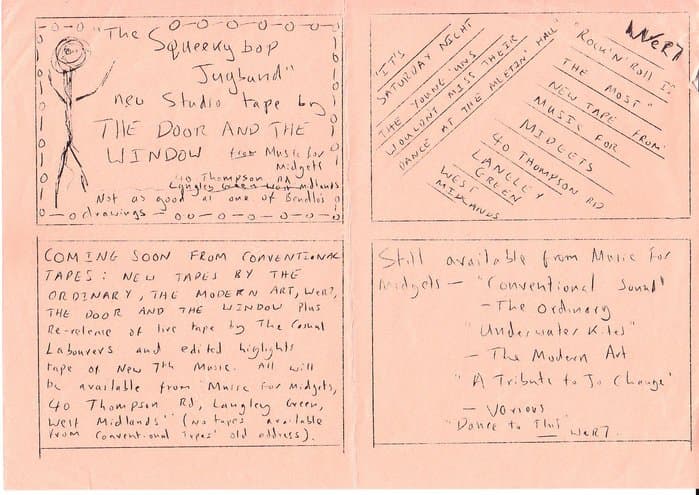 "The
Squeeky bop
Jugband"
new Studio tape by
THE DOOR AND THE
WINDOW from Music for
Midgets
40 Thompson Rd
Langley Green West Midlands
Not as good as one of Bendle's
drawings
WeR7
'IT'S
SATURDAY NIGHT
THE YOUNG 'UNS
WOULDN'T MISS THEIR
DANCE AT THE MEETIN' HALL'
"ROCK'N'ROLL IS
THE MOST"
NEW TAPE FROM
MUSIC FOR
MIDGETS
40 THOMPSON RD
LANGLEY
GREEN
WEST
MIDLANDS
COMING SOON FROM CONVENTIONAL
TAPES: NEW TAPES BY THE
ORDINARY, THE MODERN ART, WeR7,
THE DOOR AND THE WINDOW Plus
Re-release of live tape by The Casual
Labourers and edited higlights
tape of New 7th Music. All will
be available from 'Music for Midgets,
40 Thompson Rd, Langley Green,
West Midlands'' (No tapes available
from Conventional Tapes' old address).
Still available from Music for
Midgets – "Conventional Sound"
– The Ordinary
"Underwater Kites"
– The Modern Art
"A Tribute to Jo Change"
– Various
"Dance to This"
— WeR7.